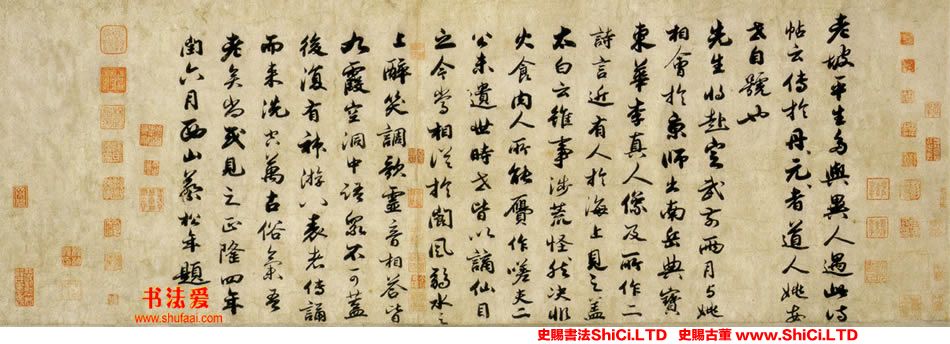 老坡平生多與異人遇此詩
帖云傳於丹元者道人姚安
世自號也
先生將赴定武前兩月與姚
相會於京師出南岳典寶
東華李真人像及所作二
詩言近有人於海上見之蓋
太白云雖事涉荒怪然決非
火食肉人所能贗作嗟夫二
公未遺世時世皆以謫仙目
之今當相從於閬風弱水之
上醉笑調歌靈音相答皆
九霞空洞中語眾不可蓋
後復有神游八表者傳誦
而来洗空萬古俗氣吾
老矣尚或見之正隆四年
閏六月西山蔡松年題
书法爱
www.shufaai.com
史賜書法ShiCi.LTD 史賜古董 www.ShiCi.LTD